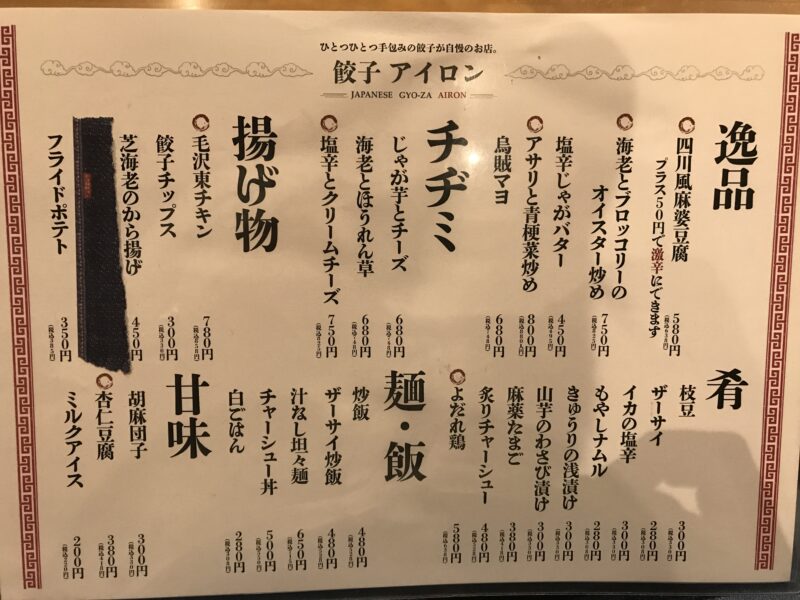 ひとつひとつ手包みの餃子が自慢のお店。
餃子 アイロン
JAPANESE GYO-ZA AIRON
逸品
四川風麻婆豆腐 580円
プラス50円で激辛にできます
海老とブロッコリーの
オイスター炒め 750円
塩辛じゃがバター 450円
アサリと青梗菜炒め 800円
烏賊マヨ 680円
チヂミ
じゃが芋とチーズ 680円
海老とほうれん草 680円
塩辛とクリームチーズ 750円
揚げ物
毛沢東チキン 780円
餃子チップス 300円
芝海老のから揚げ 450円
フライドポテト 350円
肴
枝豆 300円
ザーサイ 280円
イカの塩辛 300円
もやしナムル 280円
きゅうりの浅漬け 300円
山芋のわさび漬け 300円
麻薬たまご 380円
炙りチャーシュー 480円
よだれ鶏 580円
麺・飯
炒飯 480円
ザーサイ炒飯 480円
汁なし坦々麺 650円
チャーシュー丼 500円
白ごはん 280円
甘味
胡麻団子 300円
杏仁豆腐 380円
ミルクアイス 200円